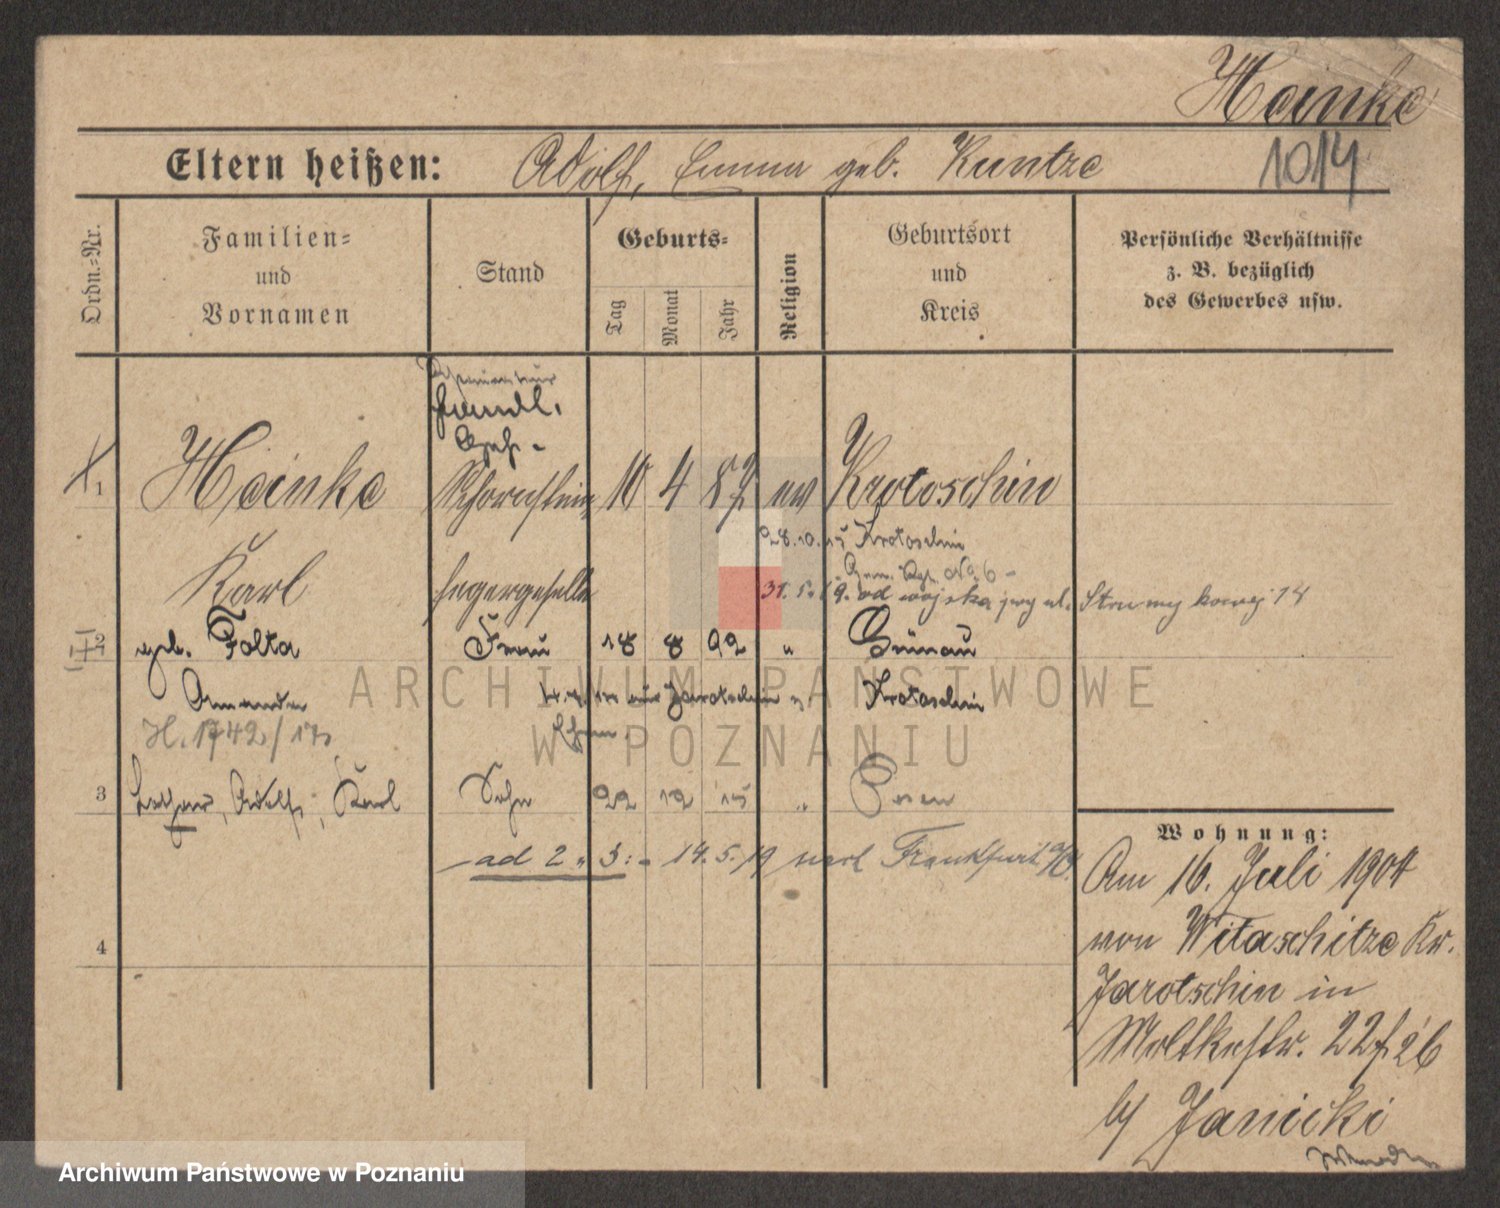 Heinke
1014
Eltern heißen: Adolf, Emma geb. Kuntze
Ordn.=Nr.
Familien=
und
Vornamen
Stand
Geburts=
Tag
Monat
Jahr
Religion
Geburtsort
und
Kreis
Persönliche Verhältnisse
z. B. bezüglich
des Gewerbes usw.
Handl.
Geh.
1 Heinke Schornstein= 10 4 87 ev Krotoschin
28.10.15 Krotoschin
Karl fegergeselle
No. 6
31. 5. 19. od wojska przy ul. Strumykowej 14
2 geb. Folta Frau 18 8 92 " Grünau
Amanda Krotoschin
H. 1742/17
3 Lothar, Adolf, Karl Sohn 22 12 15 " Posen
ad 2 u 3: - 14. 5. 19 nach Frankfurt a/O.
4
Wohnung:
Am 16. Juli 1904
von Witaschitze Kr.
Jarotschin in
Moltkestr. 22
b/ Janicki
ARCHIWUM PAŃSTWOWE
W POZNANIU
Archiwum Państwowe w Poznaniu